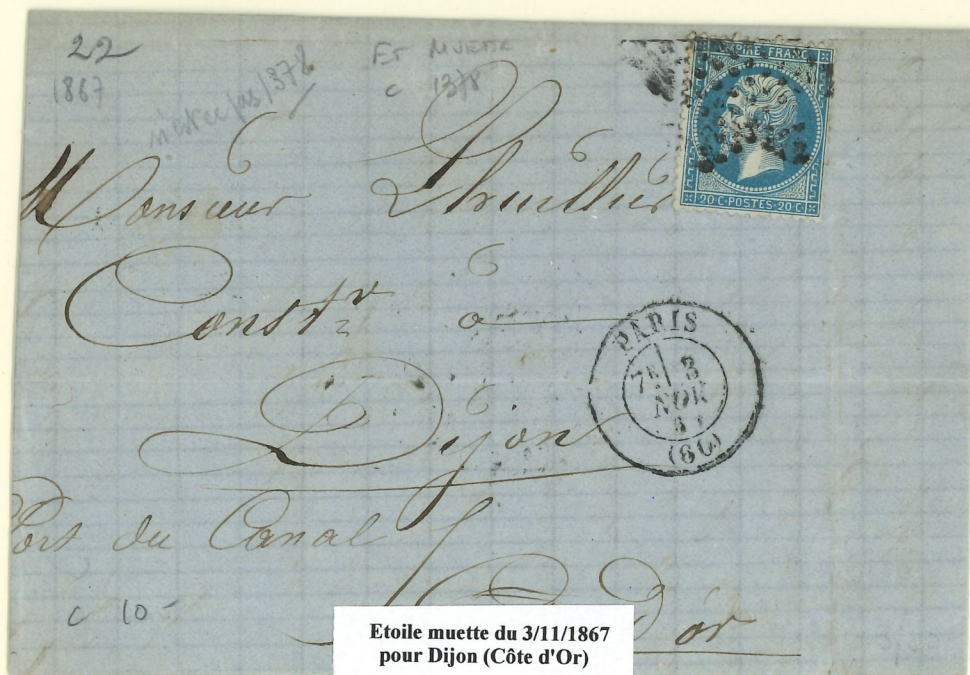 22
1867
n'est ce pas 1378
ET MUETTE
C 1378
EMPIRE FRANC
20 C-POSTES-20 C
Monsieur Lhuillier
Constr à
PARIS
7E 3
NOV
67
(60)
Dijon
Port du Canal
C 10 -
d'or
Etoile muette du 3/11/1867
pour Dijon (Côte d'Or)